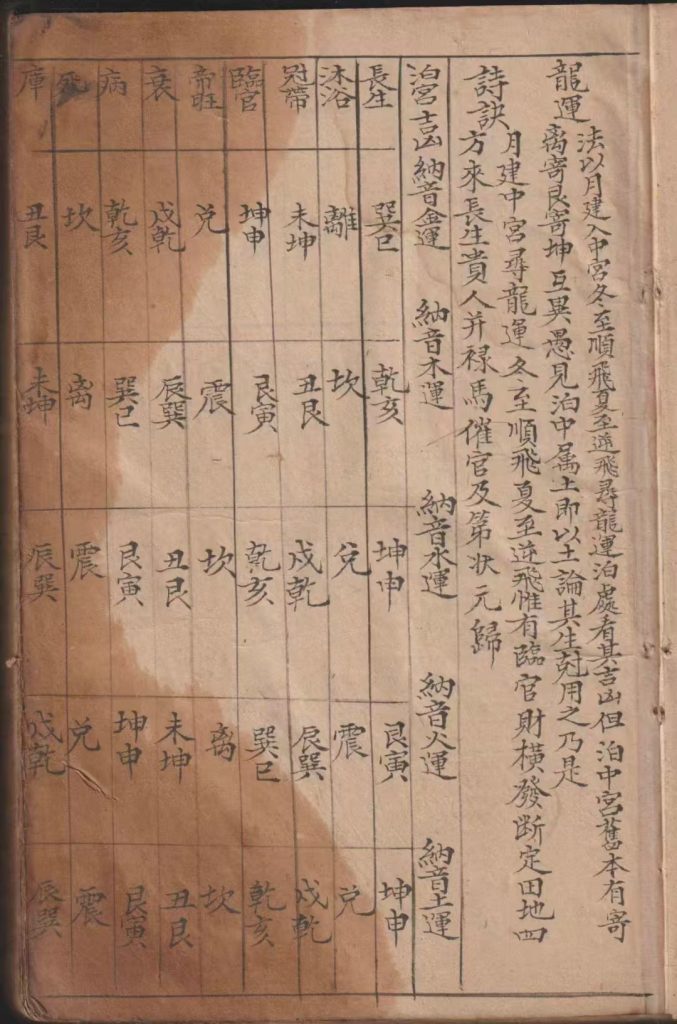 龍運
法以月建入中宮冬至順飛夏至逆飛尋龍運泊處看其吉凶但泊中宮舊本有寄
离寄艮寄坤互異愚見泊中属土即以土論其生尅用之乃是
詩訣
月建中宮尋龍運冬至順飛夏至逆飛惟有臨官財橫發断定田地四
方來長生貴人并祿馬催官及第状元歸
泊宮吉凶 納音金運 納音木運 納音水運 納音火運 納音土運
長生 巽巳 乾亥 坤申 艮寅 坤申
沐浴 離 坎 兌 震 兌
冠帶 未坤 丑艮 戌乾 辰巽 戌乾
臨官 坤申 艮寅 乾亥 巽巳 乾亥
帝旺 兌 震 坎 离 坎
衰 戌乾 辰巽 丑艮 未坤 丑艮
病 乾亥 巽巳 艮寅 坤申 艮寅
死 坎 离 震 兌 震
庫 丑艮 未坤 辰巽 戌乾 辰巽